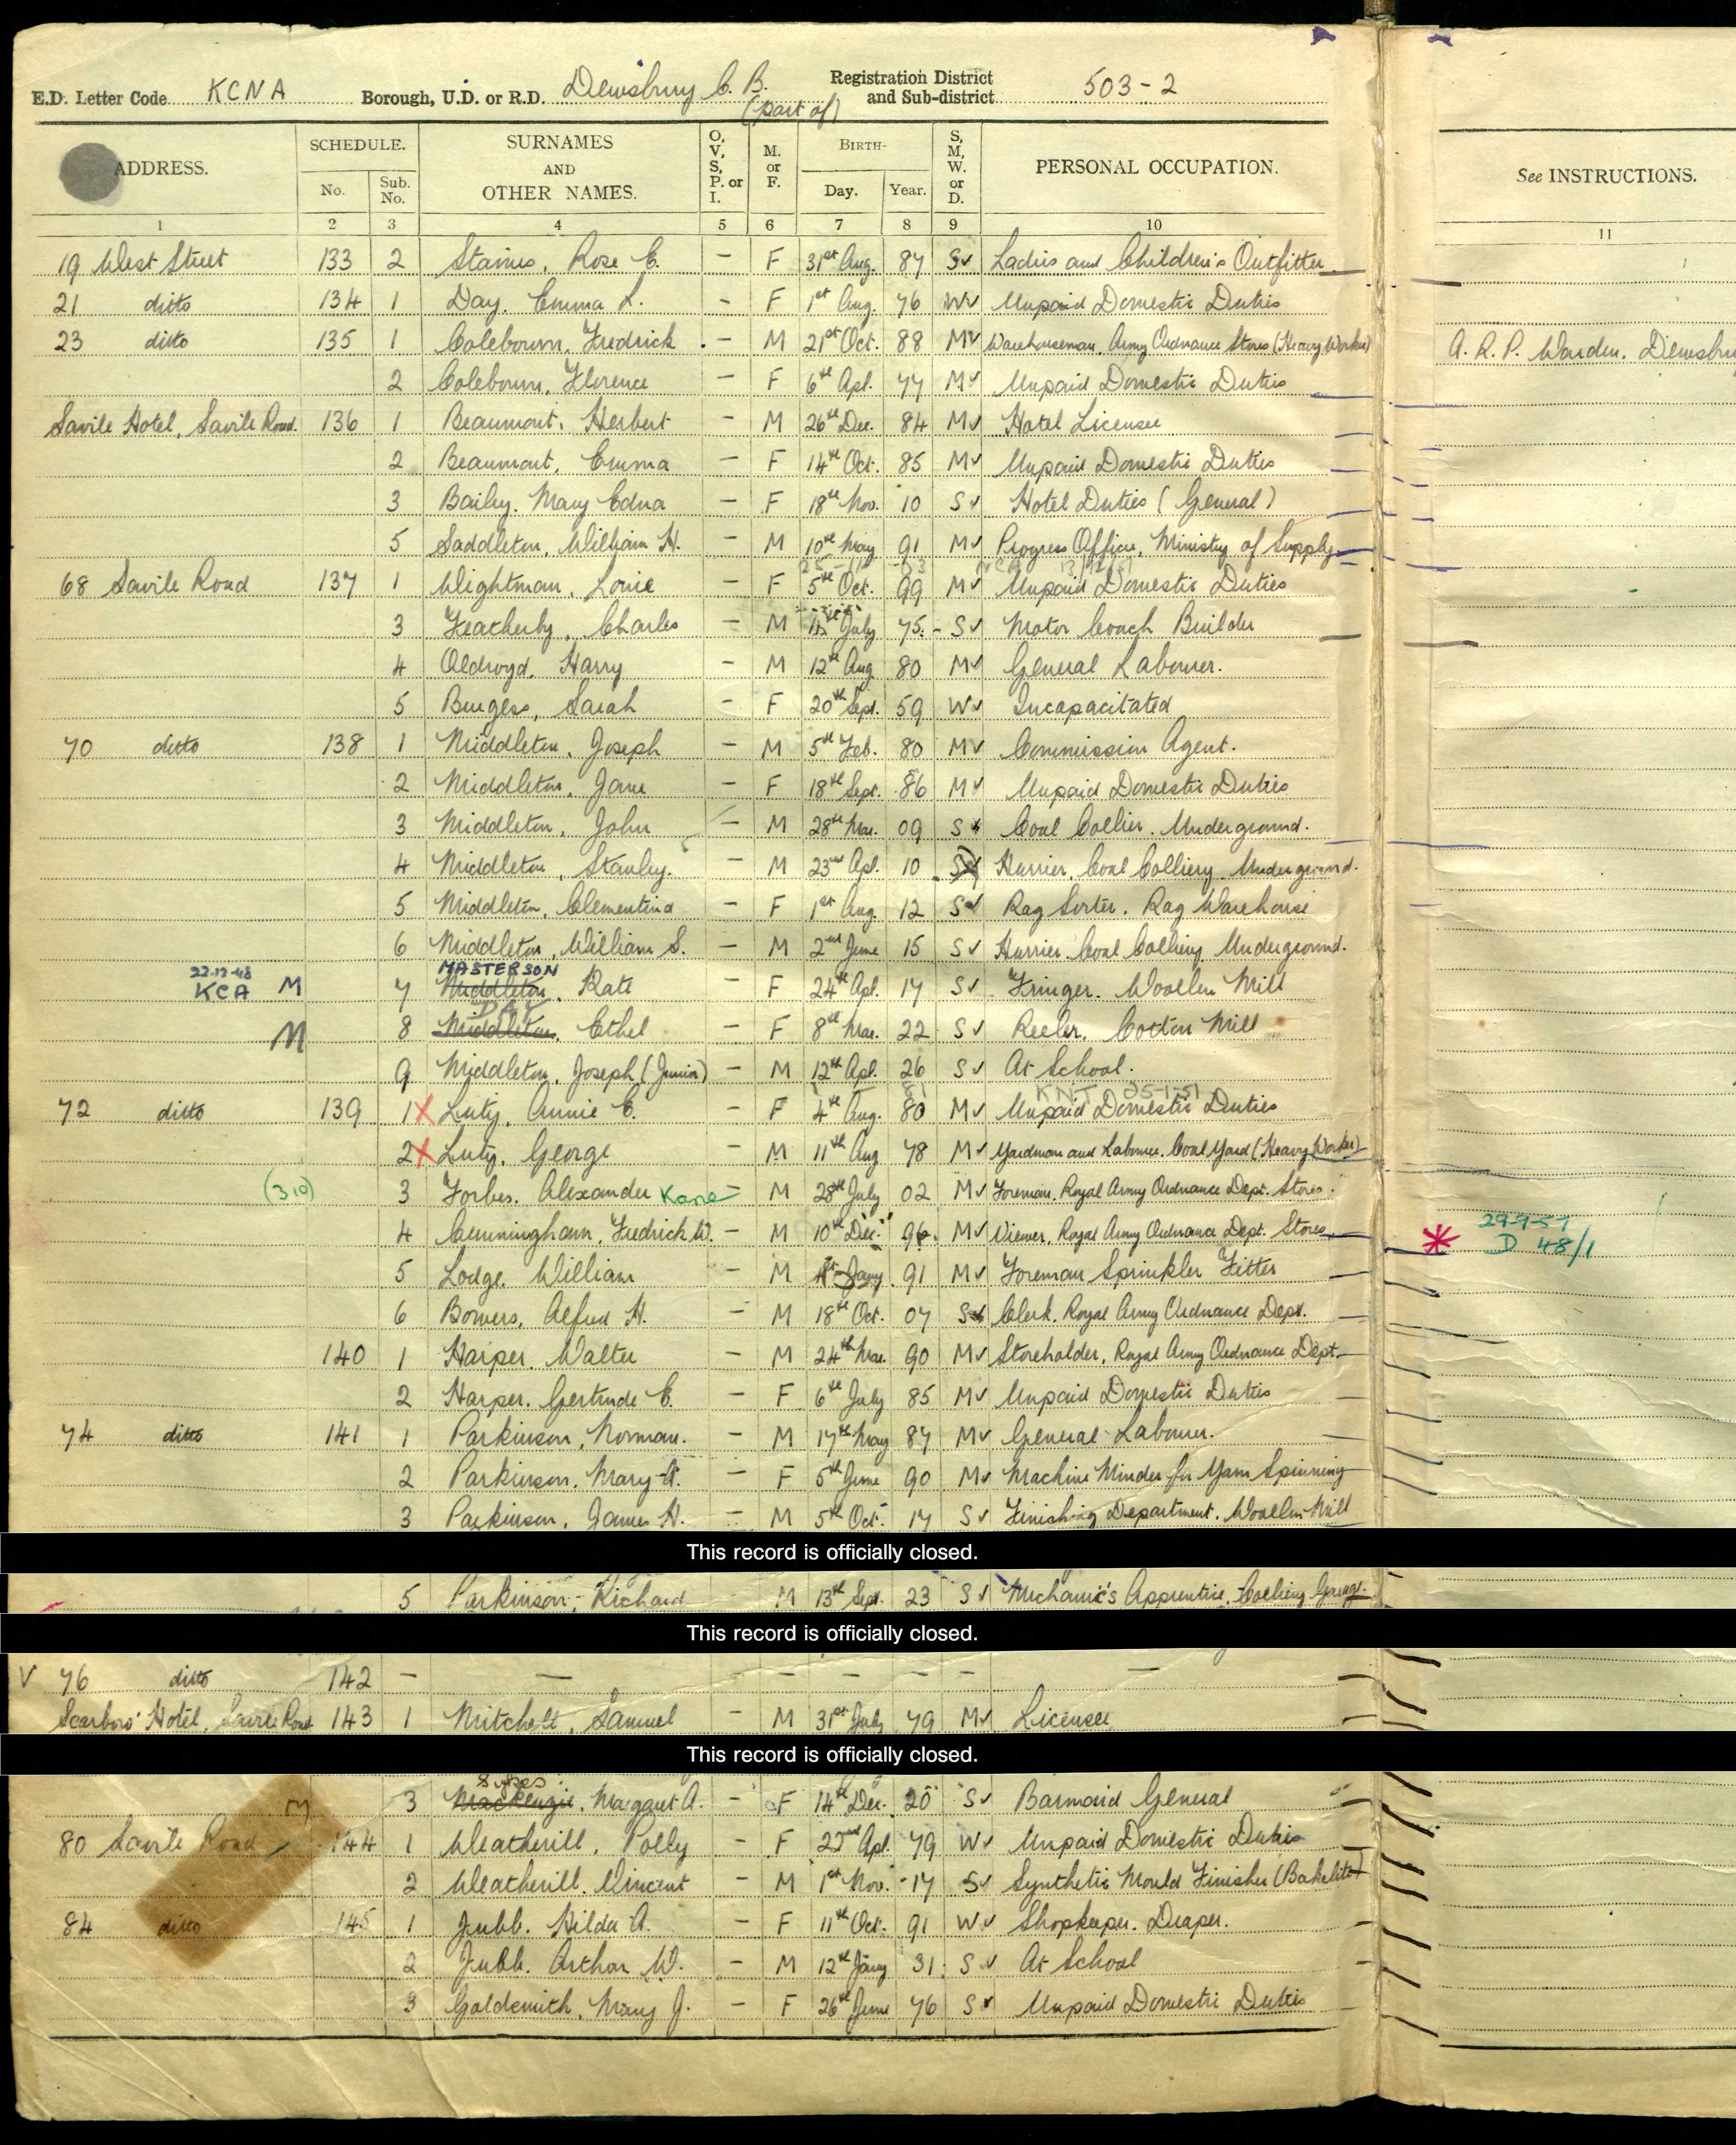 E.D. Letter Code KCNA Borough, U.D. or R.D. Dewsbury C. B. (part of) Registration District and Sub-district 503-2
ADDRESS. SCHEDULE. No. Sub. No. SURNAMES AND OTHER NAMES. O, V, S, P. or I. M. or F. BIRTH- Day. Year. S, M, W. or D. PERSONAL OCCUPATION. See INSTRUCTIONS.
1 2 3 4 5 6 7 8 9 10 11
19 West Street 133 2 Staines, Rose E. - F 31st Aug. 87 S Ladies and Children's Outfitter
21 ditto 134 1 Day. Emma L. - F 1st Aug. 76 W Unpaid Domestic Duties
23 ditto 135 1 Colebourn, Fredrick - M 21st Oct. 88 M Warehouseman, Army Ordnance Stores (Heavy Worker) A. R. P. Warden, Dewsbury
2 Colebourn, Florence - F 6th Apl. 77 M Unpaid Domestic Duties
Savile Hotel, Savile Road. 136 1 Beaumont, Herbert - M 26th Dec. 84 M Hotel Licensee
2 Beaumont, Emma - F 14th Oct. 85 M Unpaid Domestic Duties
3 Bailey. Mary Edna - F 18th Nov. 10 S Hotel Duties (General)
5 Saddleton, William H. - M 10th May 91 M Progress Officer, Ministry of Supply
68 Savile Road 137 1 Wightman, Louie - F 5th Oct. 99 M Unpaid Domestic Duties
3 Featherby, Charles - M July 75 - S Motor Coach Builder
4 Oldroyd, Harry - M 12th Aug 80 M General Labourer.
5 Burgess, Sarah - F 20th Sept. 59 W Incapacitated
70 ditto 138 1 Middleton, Joseph - M 5th Feb. 80 M Commission Agent.
2 Middleton, Jane - F 18th Sept. 86 M Unpaid Domestic Duties
3 Middleton, John - M 28th Mar. 09 S Coal Collier. Underground.
4 Middleton, Stanley. - M 23rd Apl. 10 S Hurrier, Coal Colliery. Underground.
5 Middleton, Clementina - F 1st Aug. 12 S Rag Sorter. Rag Warehouse
6 Middleton, William S. - M 2nd June 15 S Hurrier. Coal Colliery. Underground.
22-12-48 MASTERSON
KCA M 7 Middleton, Kate - F 24th Apl. 17 S Fringer. Woollen Mill
DAY
M 8 Middleton, Ethel - F 8th Mar. 22 S Reeler, Cotton Mill
9 Middleton, Joseph (Junior) - M 12th Apl. 26 S At School.
KNT 25-1-51
72 ditto 139 1 Luty, Annie E. - F 4th Aug. 80 M Unpaid Domestic Duties
2 Luty, George - M 11th Aug 78 M Yardman and Labourer, Coal Yard (Heavy Worker)
(310) 3 Forbes. Alexander Kane - M 28th July 02 M Foreman, Royal Army Ordnance Dept. Stores.
4 Cunningham, Fredrick W. - M 10th Dec. 96 M Viewer, Royal Army Ordnance Dept. Stores 29-9-57 D 48/1
5 Lodge, William - M Jany 91 M Foreman Sprinkler Fitter
6 Bowers, Alfred H. - M 18th Oct. 07 S Clerk. Royal Army Ordnance Dept.
140 1 Harper. Walter - M 24th Mar. 90 M Storeholder, Royal Army Ordnance Dept
2 Harper. Gertrude E. - F 6th July 85 M Unpaid Domestic Duties
74 ditto 141 1 Parkinson, Norman. - M 17th May 87 M General Labourer.
2 Parkinson, Mary A. - F 5th June 90 M Machine Minder for Yarn Spinning
3 Parkinson, James H. - M 5th Oct. 17 S Finishing Department. Woollen Mill
This record is officially closed.
5 Parkinson, Richard M 13th Sept. 23 S Mechanic's Apprentice, Garage
This record is officially closed.
V 76 ditto 142 - - - - - - - -
Scarboro' Hotel, Savile Road 143 1 Mitchell, Samuel - M 31st July 79 M Licensee
This record is officially closed.
Sykes
M 3 Mackenzie, Margaret A. - F 14th Dec. 20 S Barmaid General
80 Savile Road 144 1 Weatherill, Polly - F 22nd Apl. 79 W Unpaid Domestic Duties
2 Weatherill. Vincent - M 1st Nov. 17 S Synthetic Mould Finisher (Bakelite)
84 ditto 145 1 Jubb. Hilda A. - F 11th Oct. 91 W Shopkeeper. Draper.
2 Jubb. Arthur W. - M 12th Jany 31 S At School
3 Goldsmith, Mary J. - F 26th June 76 S Unpaid Domestic Duties